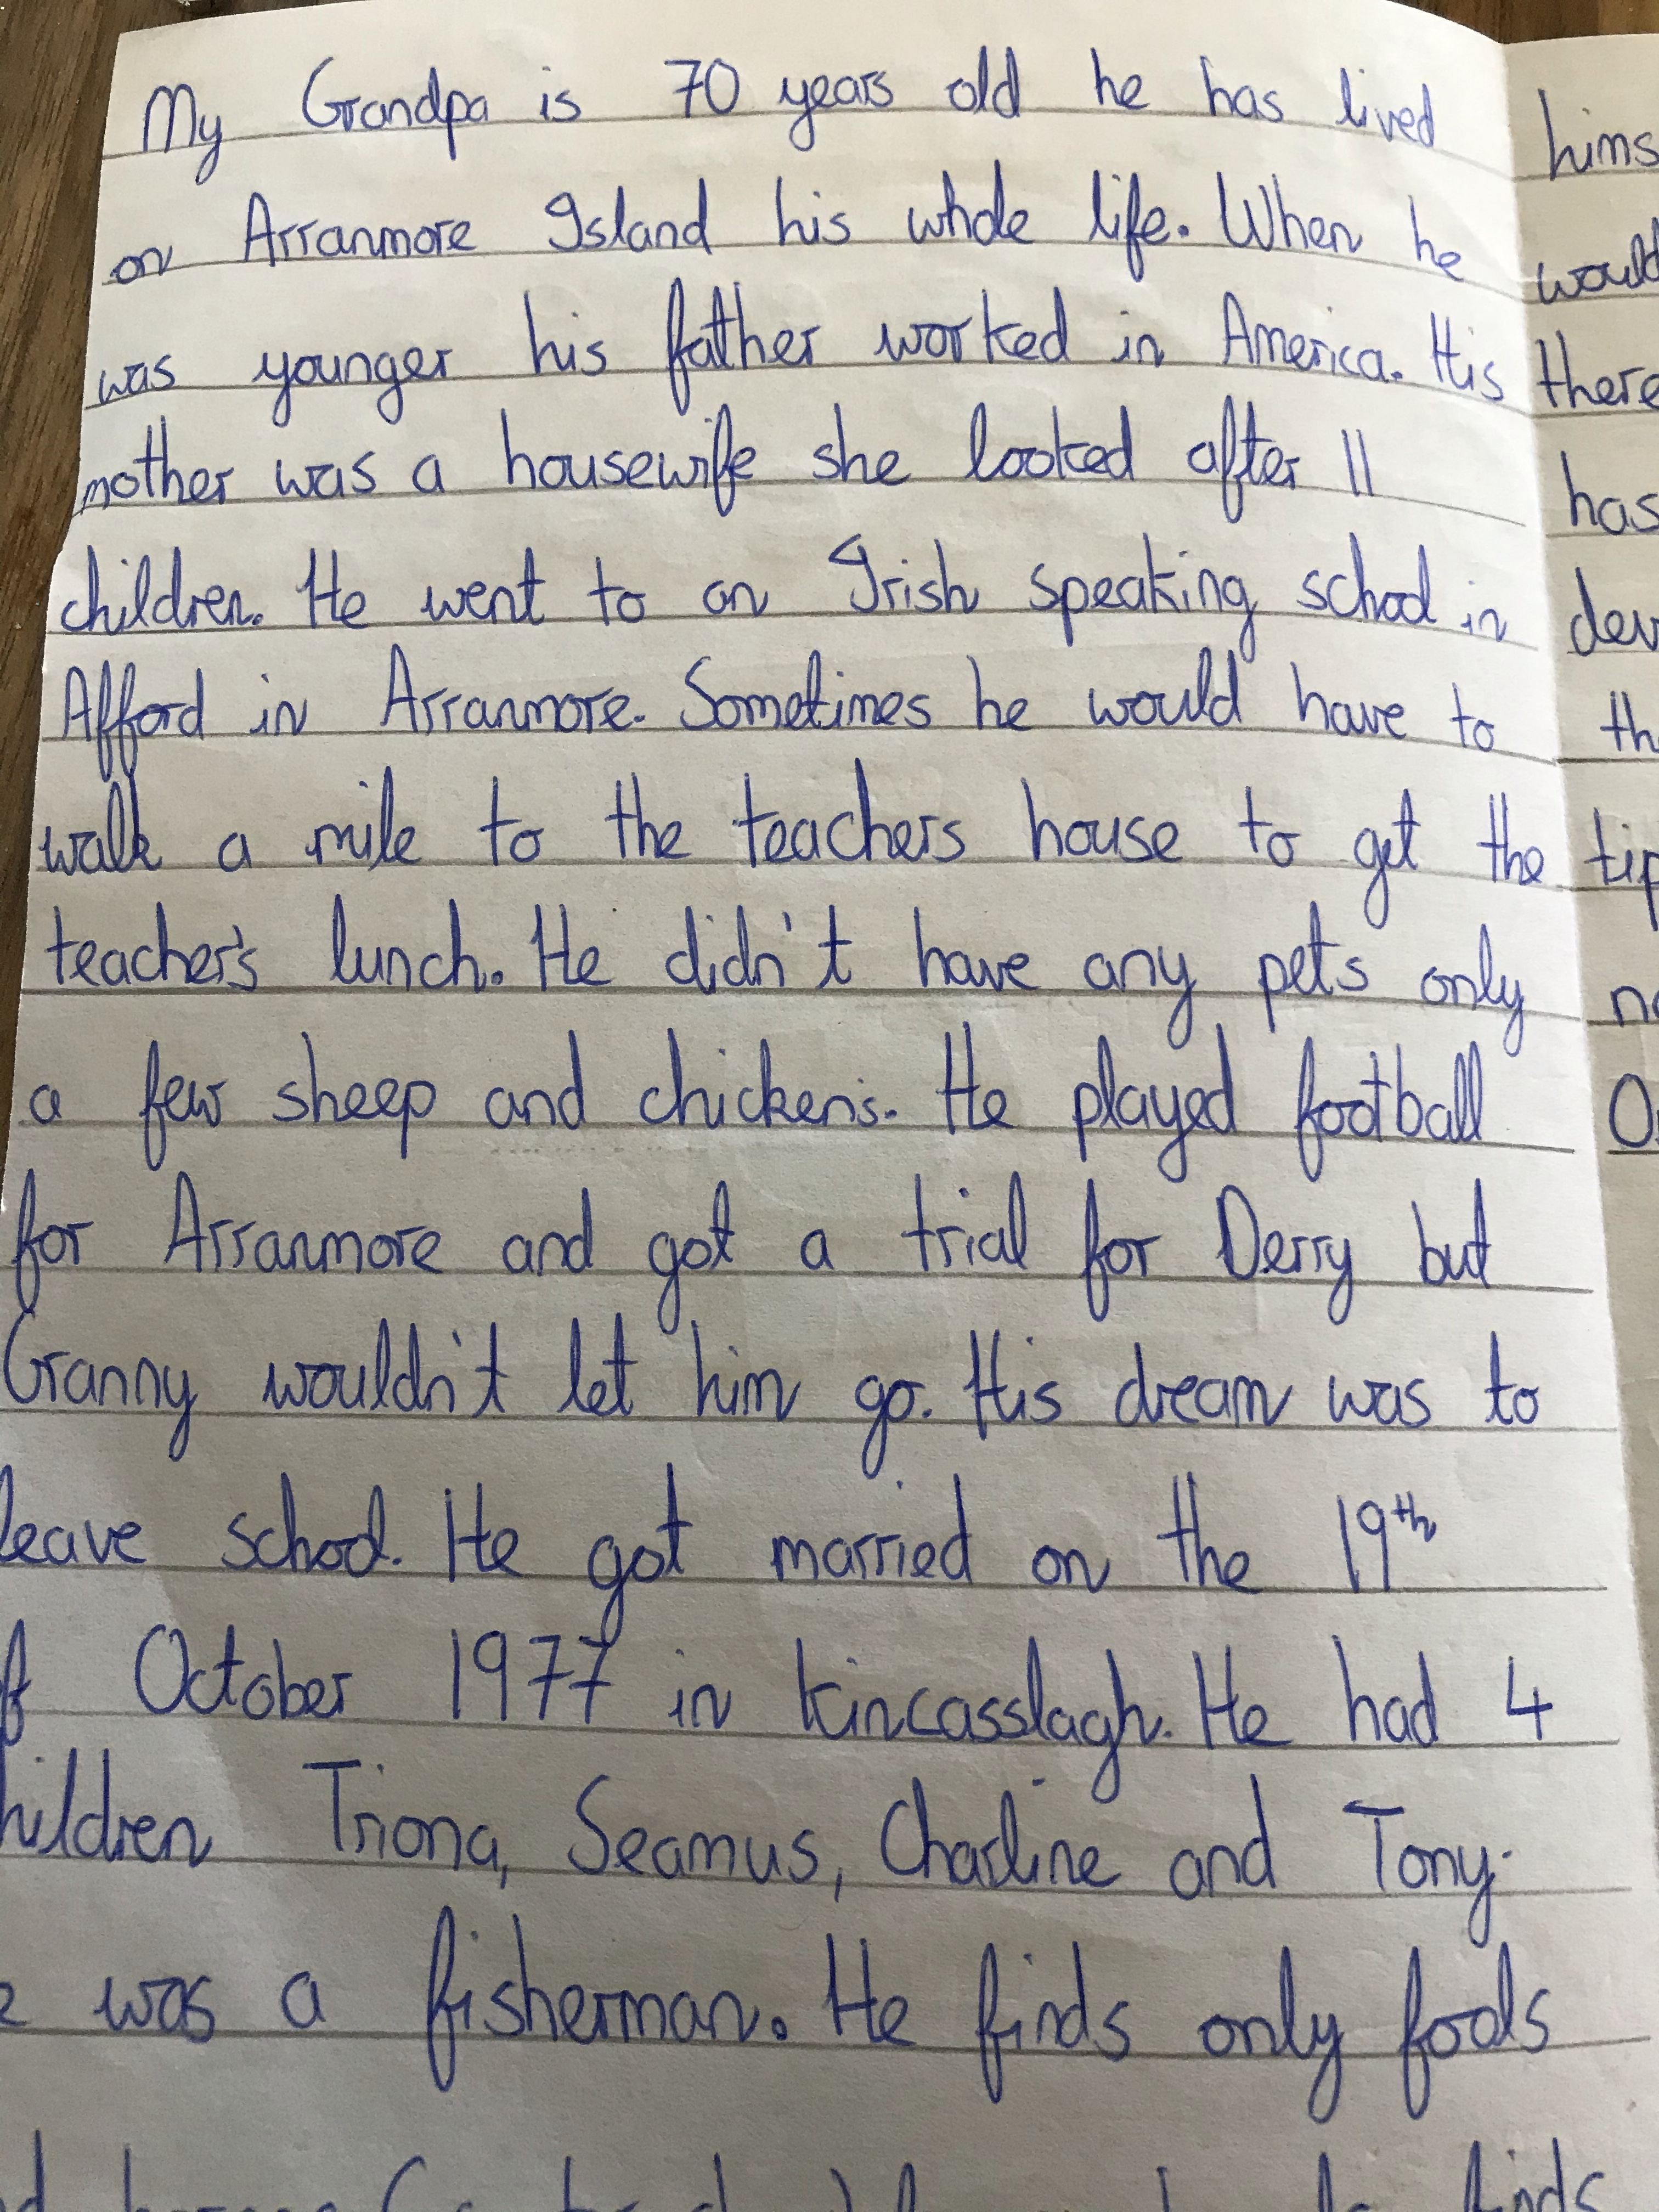 My Grandpa is 70 years old he has lived
on Arranmore Island his whole life. When he
was younger his father worked in America. His
mother was a housewife she looked after 11
children. He went to an Irish speaking school in
Afford in Arranmore. Sometimes he would have to
walk a mile to the teachers house to get the
teacher's lunch. He didn't have any pets only
a few sheep and chickens. He played football
for Arranmore and got a trial for Derry but
Granny wouldn't let him go. His dream was to
leave school. He got married on the 19th
October 1977 in Kincasslagh. He had 4
Triona, Seamus, Charline and Tony.
was a fisherman. He finds only fools
finds
would
there
has